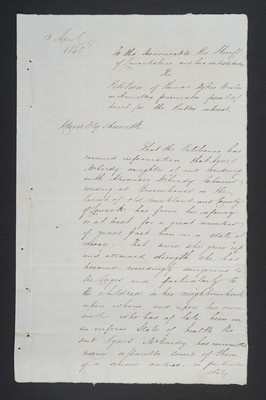 13 April
1848
To the Honourable the Sheriff
of Lanarkshire and his substitutes
The
Petition of Thomas Dykes Writer
in Hamilton procurator fiscal of
Court for the Public interest.
Humbly Sheweth
That the Petitioner has
received information that Agnes
McCurdy daughter of and residing
with Alexander McCurdy labourer
residing at Greenhouse in the
Parish of Old Monkland and County
of Lanark has from her infancy
or at least for a great number
of years past been in a state of
That since she grew up
and attained strength she has
become exceedingly dangerous to
the Lieges and particularly to
the children in her neighbourhood
upon whom and upon her own
mother who has of late been in
an infirm state of health the
said Agnes McCurdy has committed
many assaults some of them
of a severe nature. in particular